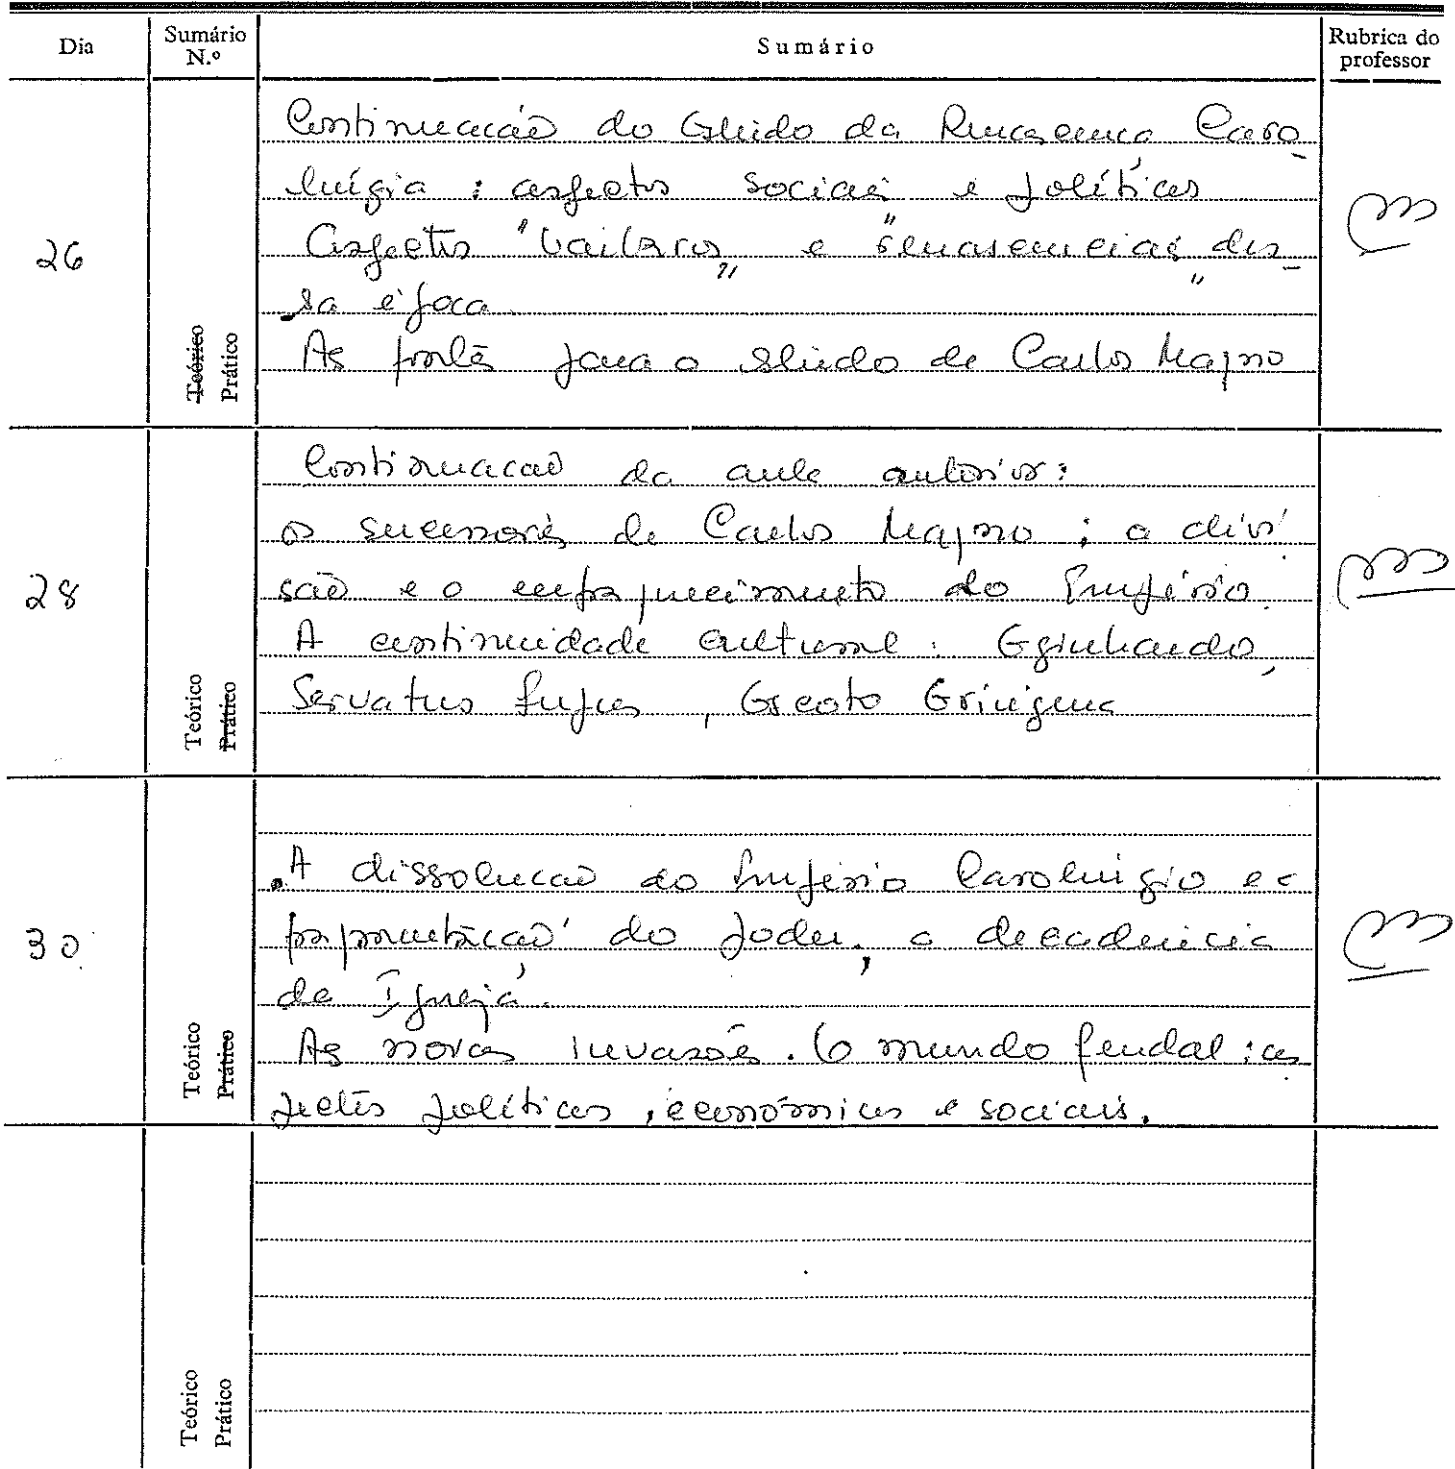 Dia
Sumário N.º
Sumário
Rubrica do professor
26
Teórico
Prático
Continuação do Estudo da Renascença Caro-
língia : aspectos sociais e políticos
Aspectos "bárbaros" e "renascenciais" des-
sa época.
As fontes para o estudo de Carlos Magno
28
Teórico
Prático
Continuação da aula anterior:
os sucessores de Carlos Magno ; a divi
são e o enfraquecimento do Império.
A continuidade cultural : Eginhardo,
Servatus Lupus , Escoto Eriúgena
30
Teórico
Prático
A dissolução do Império Carolíngio e a
fragmentação do poder, a decadência
da Igreja.
As novas invasões. O mundo feudal : as
pectos políticos , económicos e sociais.
Teórico
Prático